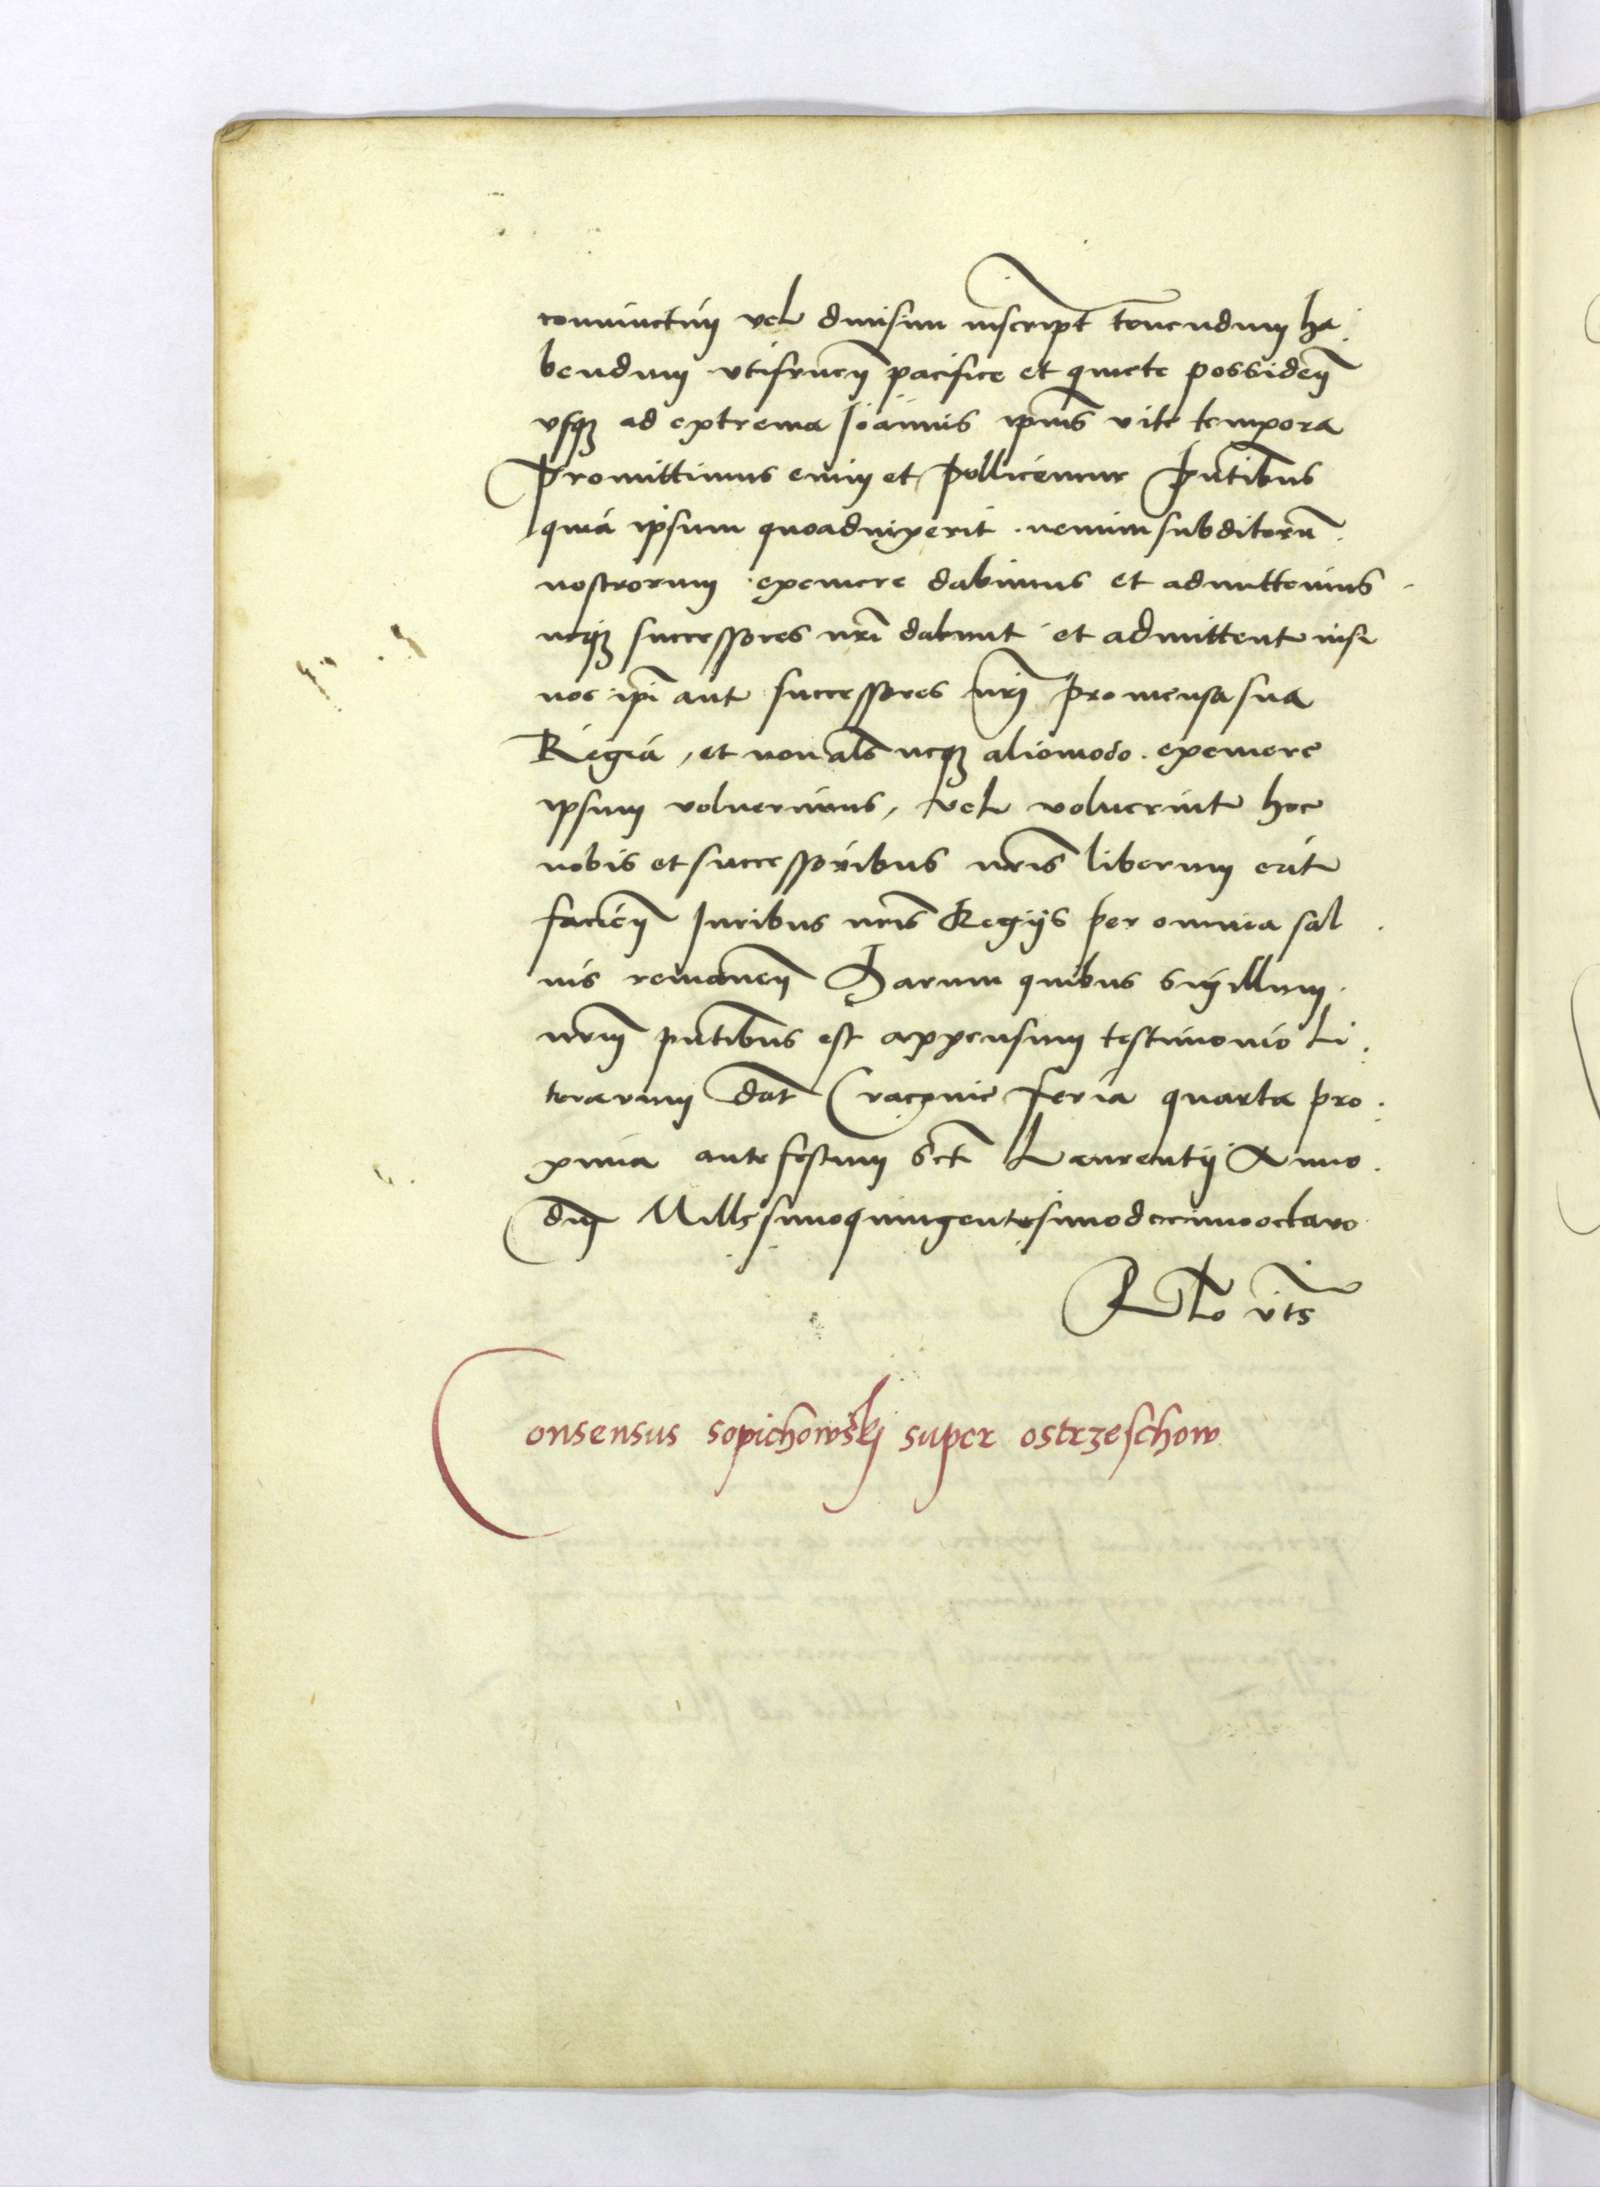 coniunctim vel diuisim inscript tenendum ha
bendum vtifrueñ pacifice et quiete possideñ
vsq; ad extrema Ioannis ipius vite tempora
Promittimus enim et pollicemur pñtibus
quia ipsum quoaduixerit nemini subditorũ
nostrorum exemere dabimus et admittemus
neq; successores nrĩ dabunt et admittent nisi
nos ipĩ aut successores nrĩ pro mensa sua
Regia, et non als neq; aliomodo exemere
ipsum voluerimus, vel voluerint hoc
nobis et successoribus nrĩs liberum erit
facieñ Iuribus nrĩs Regijs per omnia sal
uis remaneñ Harum quibus sigillum
nrm pñtibus est appensum testimonio li
terarum Dat Cracouie feria quarta pro
xima ante festum Sct Laurentij Anno
dñi Millesimoquingentesimodecimooctauo
Rlo vts
Consensus sopichowskj super ostrzeschow